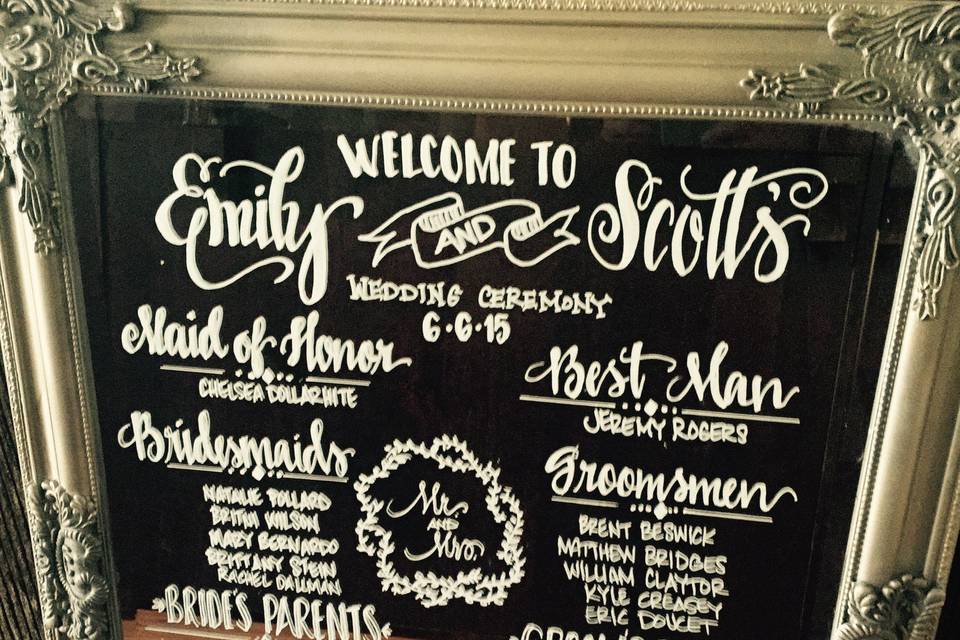 WELCOME TO
Emily AND Scott's
WEDDING CEREMONY
6·6·15
Maid of Honor
CHELSEA DOLLARHITE
Best Man
JEREMY ROGERS
Bridesmaids
NATALIE POLLARD
WILSON
MARY BERNARDO
BRITTANY STEIN
RACHEL DALLMAN
Mr.
AND
Mrs.
Groomsmen
BRENT BESWICK
MATTHEW BRIDGES
WILLIAM CLAYTOR
KYLE CREASEY
ERIC DOUCET
BRIDE'S PARENTS